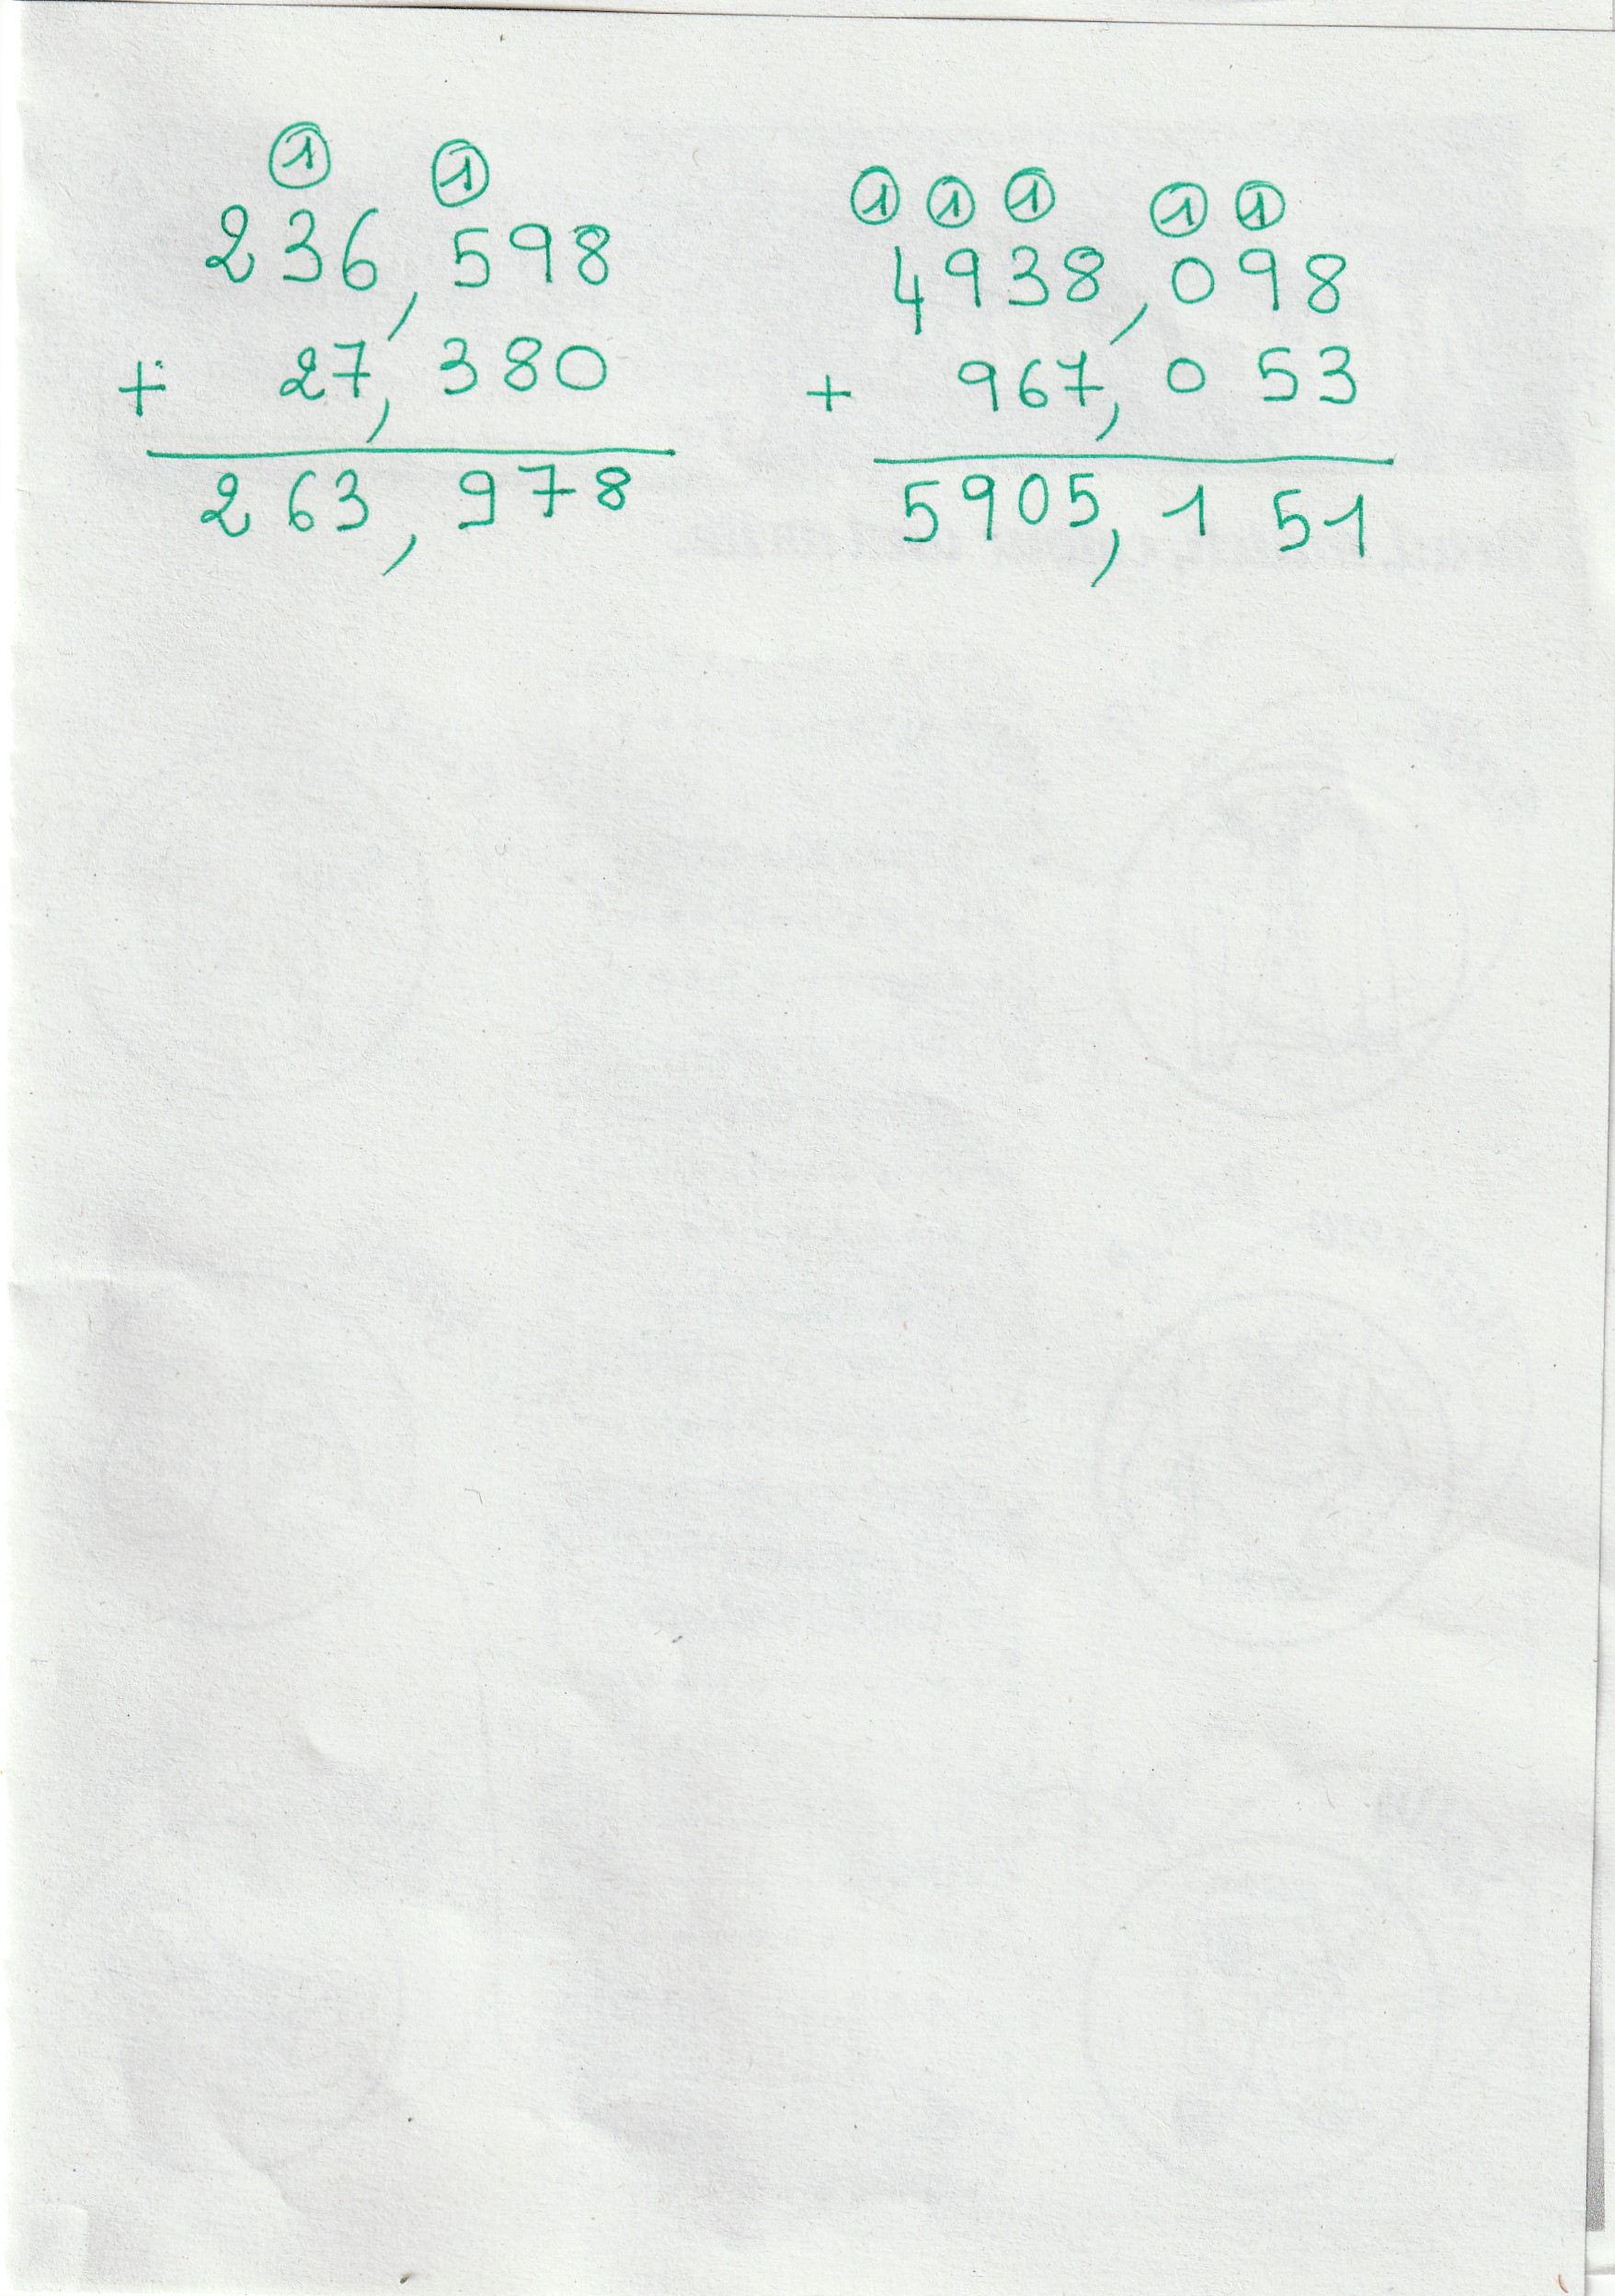 ① ①
236,598
+ 27,380
263,978
① ① ① ① ①
4938,098
+ 967,053
5905,151